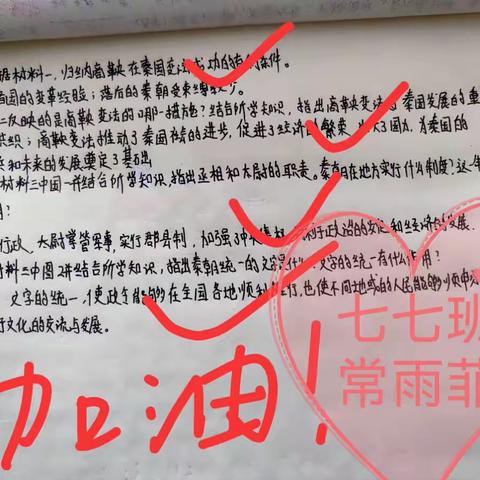 据材料一,归纳商鞅在秦国变法成功的有利条件。
国的变革经验;落后的秦朝受束缚较少。
二反映的是商鞅变法的哪一措施?结合所学知识,指出商鞅变法 秦国发展的重
织;商鞅变法推动了秦国社会的进步,促进了经济 繁荣 大了国力,为秦国的
和未来的发展奠定了基础
材料三中图一并结合所学知识,指出丞相和太尉的职责。秦朝在地方实行什么制度?这一
?
行政、太尉掌管军事,实行郡县制,加强了中央集权 利于政治的安定和经济的发展、
料三中图二并结合所学知识,指出秦朝统一的文字是什 文字的统一有什么作用?
文字的统一,使政令能够在全国各地顺利 行,也使不同地域的人民能够顺
文化的交流与发展。
七七班
常雨菲
加油!